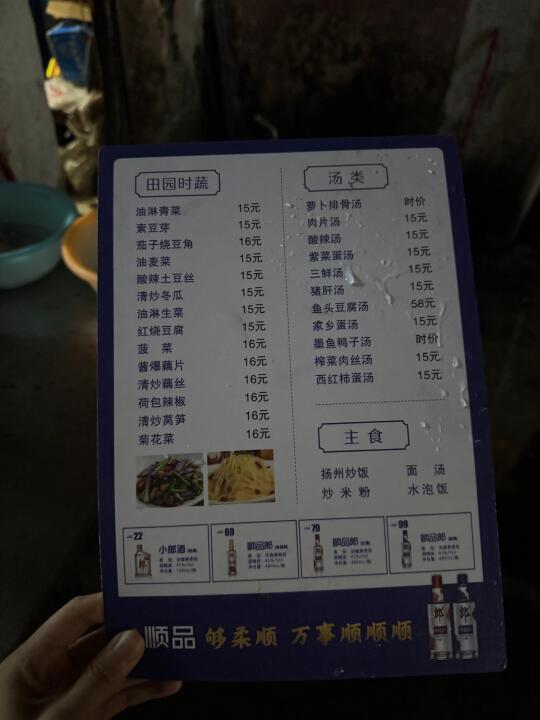 田园时蔬
油淋青菜 15元
素豆芽 15元
茄子烧豆角 16元
油麦菜 15元
酸辣土豆丝 15元
清炒冬瓜 15元
油淋生菜 15元
红烧豆腐 15元
菠 菜 16元
酱爆藕片 16元
清炒藕丝 16元
荷包辣椒 16元
清炒莴笋 16元
菊花菜 16元
汤 类
萝卜排骨汤 时价
肉片汤 15元
酸辣汤 15元
紫菜蛋汤 15元
三鲜汤 15元
猪肝汤 15元
鱼头豆腐汤 58元
家乡蛋汤 15元
墨鱼鸭子汤 时价
榨菜肉丝汤 15元
西红柿蛋汤 15元
主 食
扬州炒饭 面 汤
炒 米 粉 水泡饭
22 小郎酒
69 顺品郎
79 顺品郎
99 顺品郎
顺品 够柔顺 万事顺顺顺
郎 郎